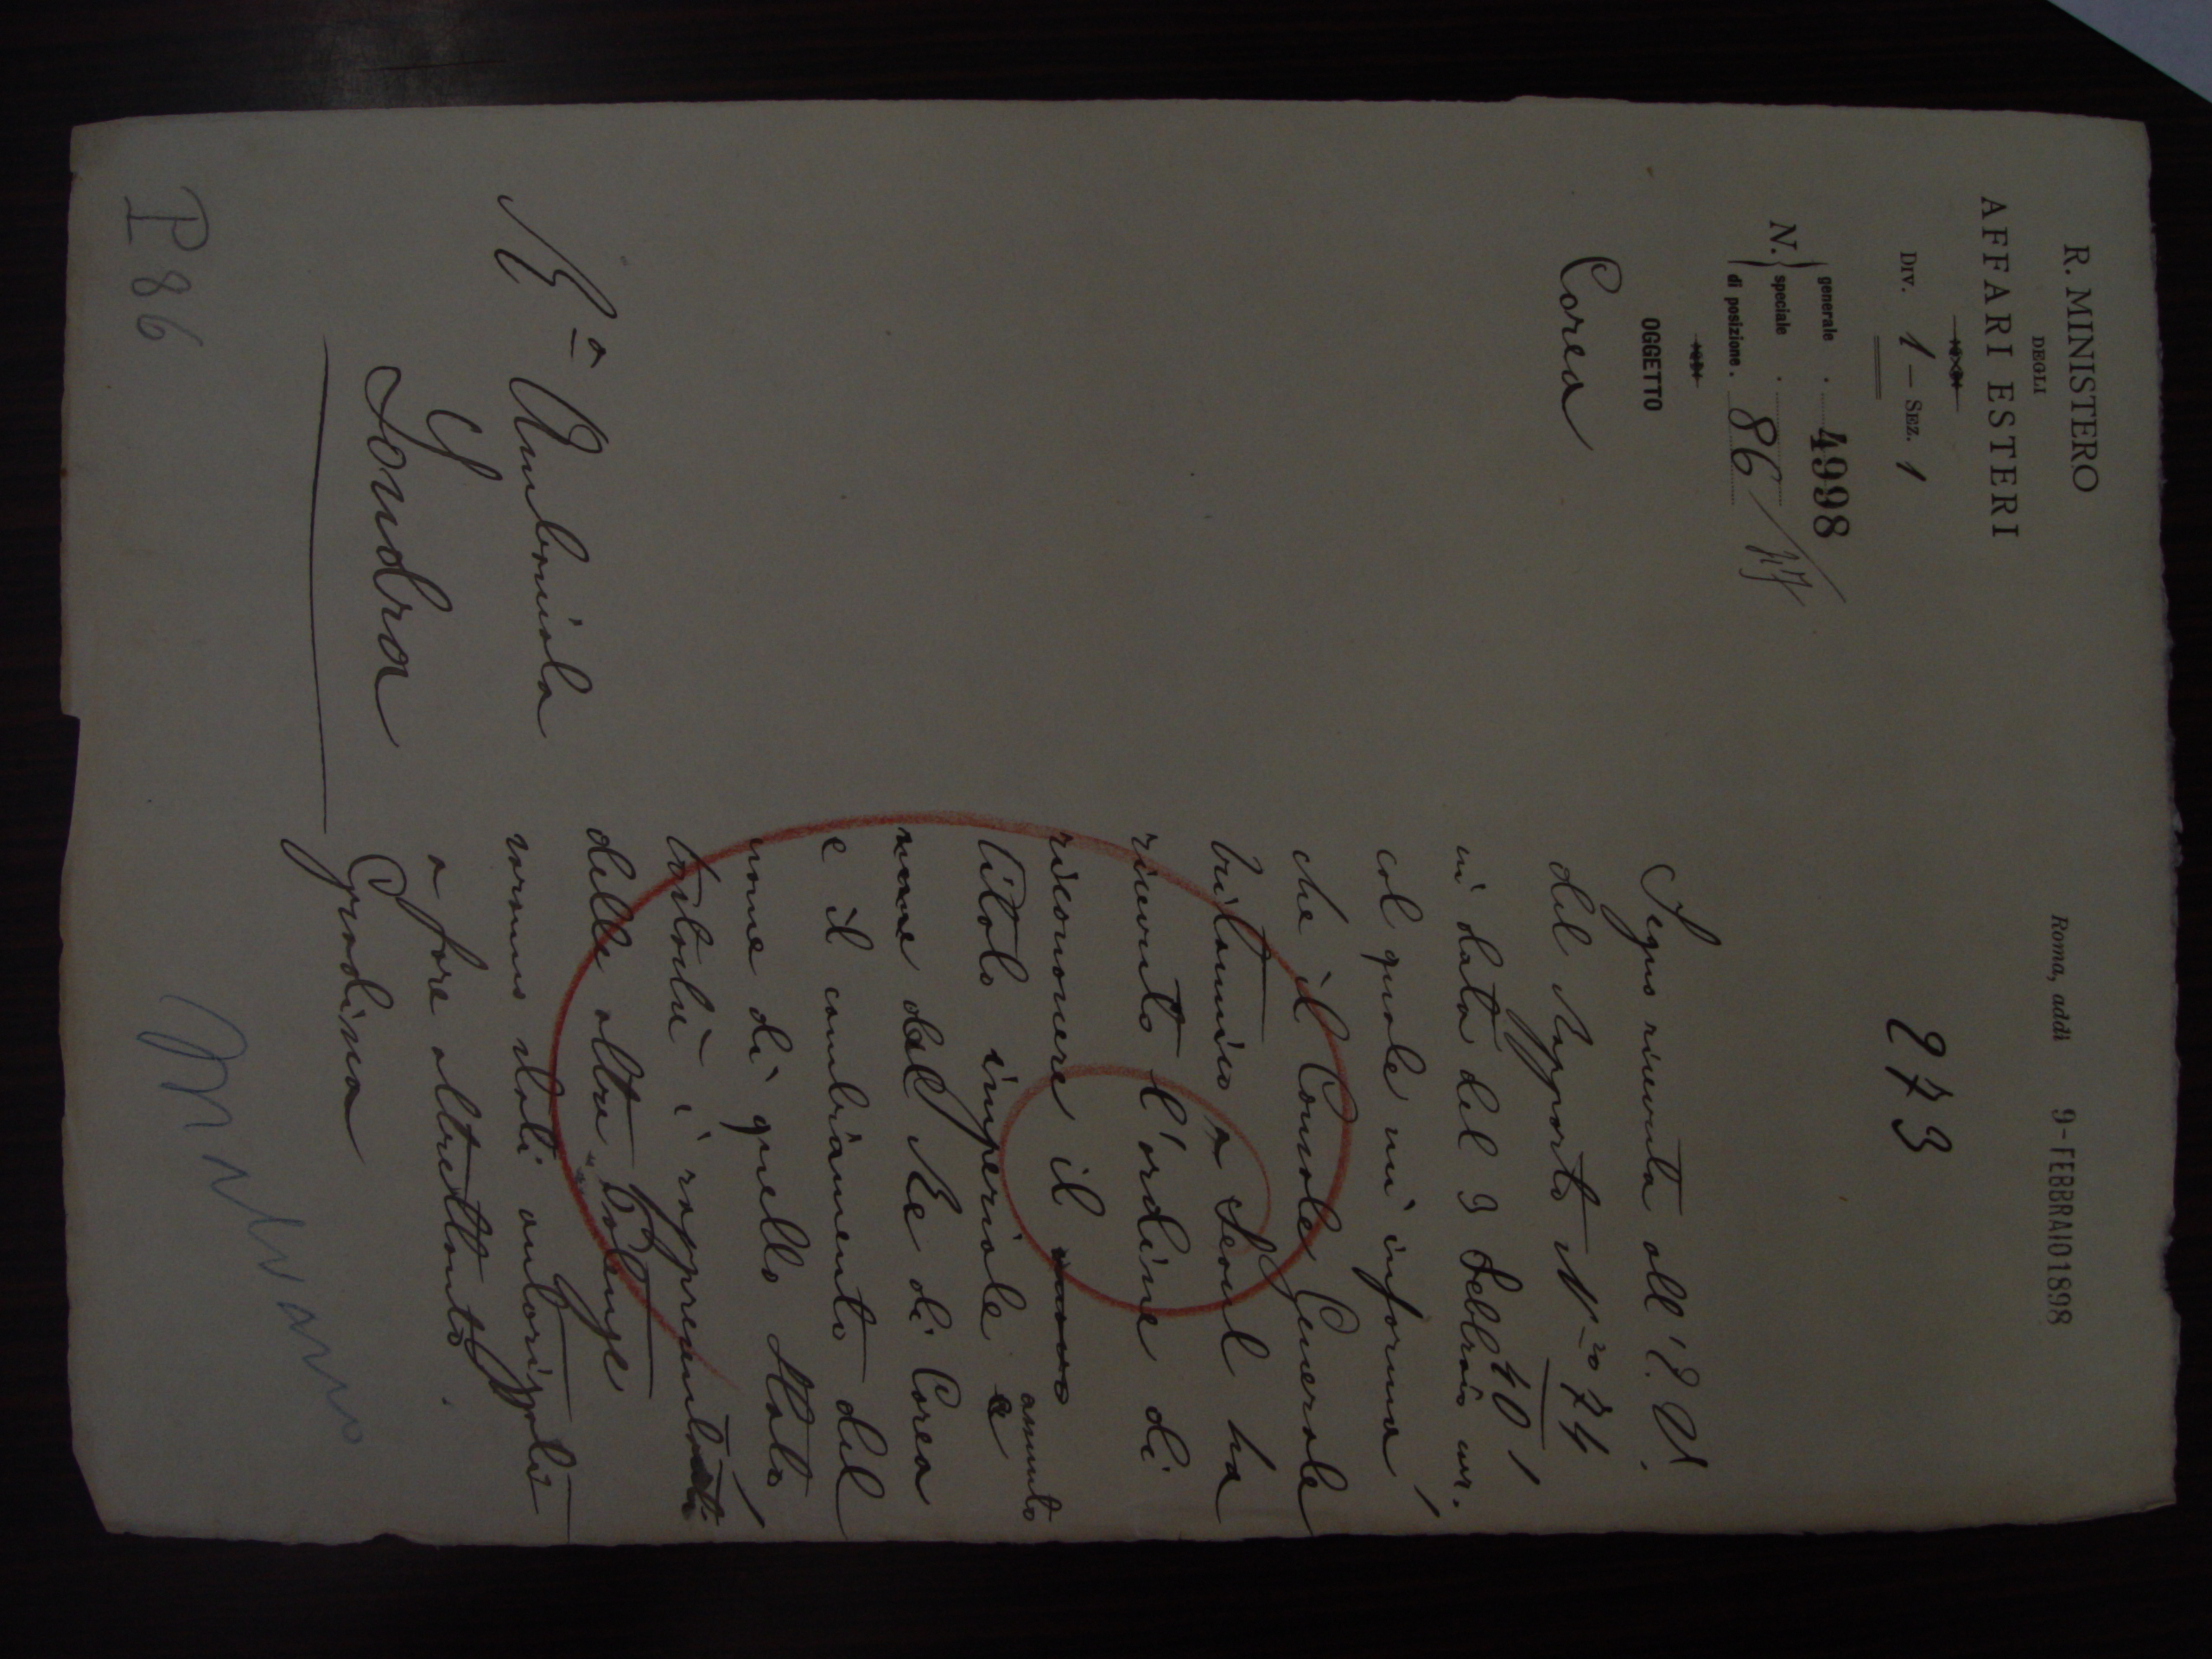 R. MINISTERO
DEGLI
AFFARI ESTERI
Div. 1 - Sez. 1
N. generale . 4998
speciale .
di posizione . 86/
OGGETTO
Corea
Roma, addì 9-FEBBRAIO 1898
273
Segno ricevuta all'E. V.
del Rapporto N° 74/401
in data del 3 Febbraio cor.
col quale mi informa
che il Console Generale
britannico a Seoul ha
ricevuto l'ordine di
riconoscere il nuovo
titolo imperiale assunto
dal Re di Corea
e il cambiamento del
nome di quello Stato
tostochè i rappresentanti
delle altre Potenze
saranno stati autorizzati
a fare altrettanto.
Gradisca
R.ª Ambasciata
Londra
P 86